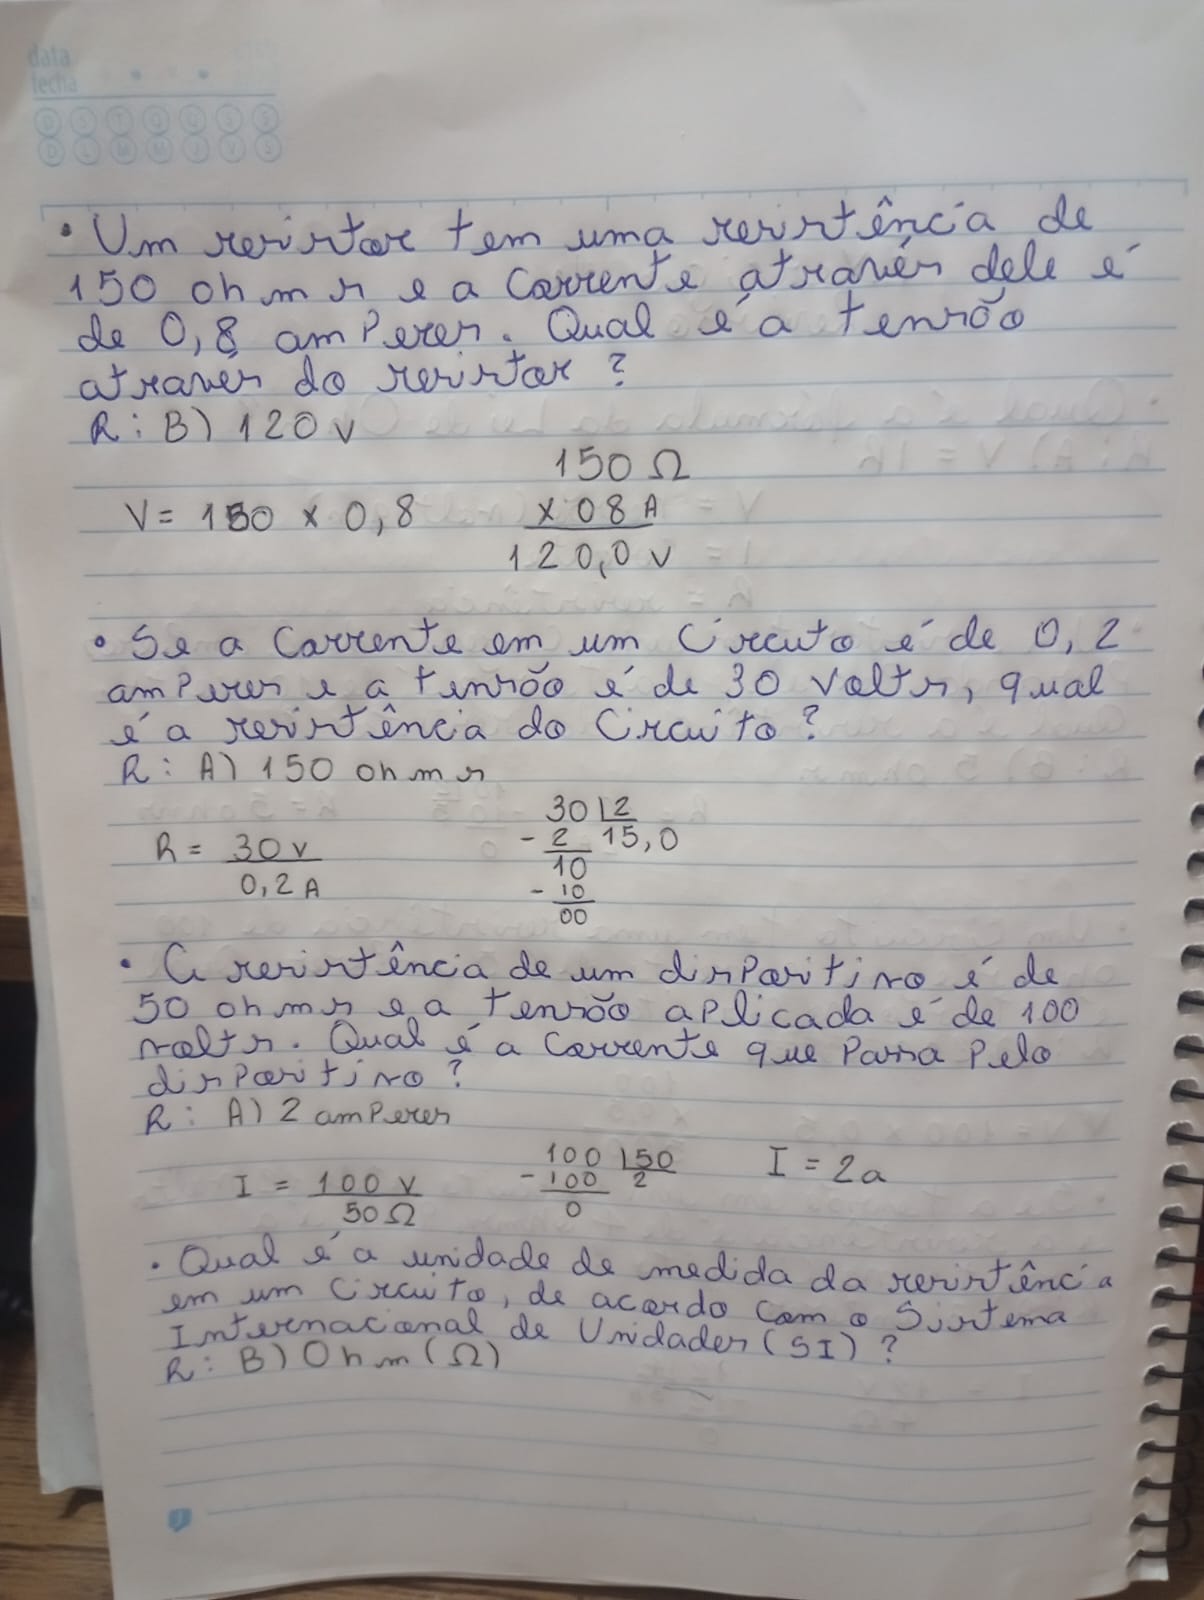 data
fecha
D S T Q Q S S
D L M M J V S
• Um resistor tem uma resistência de
150 ohms e a corrente através dele é
de 0,8 amperes. Qual é a tensão
através do resistor?
R: B) 120 v
150 Ω
V = 150 x 0,8 x 08 A
120,0 v
• Se a corrente em um circuto é de 0,2
amperes e a tensão é de 30 volts, qual
é a resistência do circuito?
R: A) 150 ohms
30 2
R = 30 v - 2 15,0
0,2 A 10
- 10
00
• A resistência de um dispositivo é de
50 ohms e a tensão aplicada é de 100
volts. Qual é a corrente que passa pelo
dispositivo?
R: A) 2 amperes
100 50 I = 2a
I = 100 v - 100 2
50 Ω 0
• Qual é a unidade de medida da resistência
em um circuito, de acordo com o Sistema
Internacional de Unidades (SI)?
R: B) Ohm (Ω)